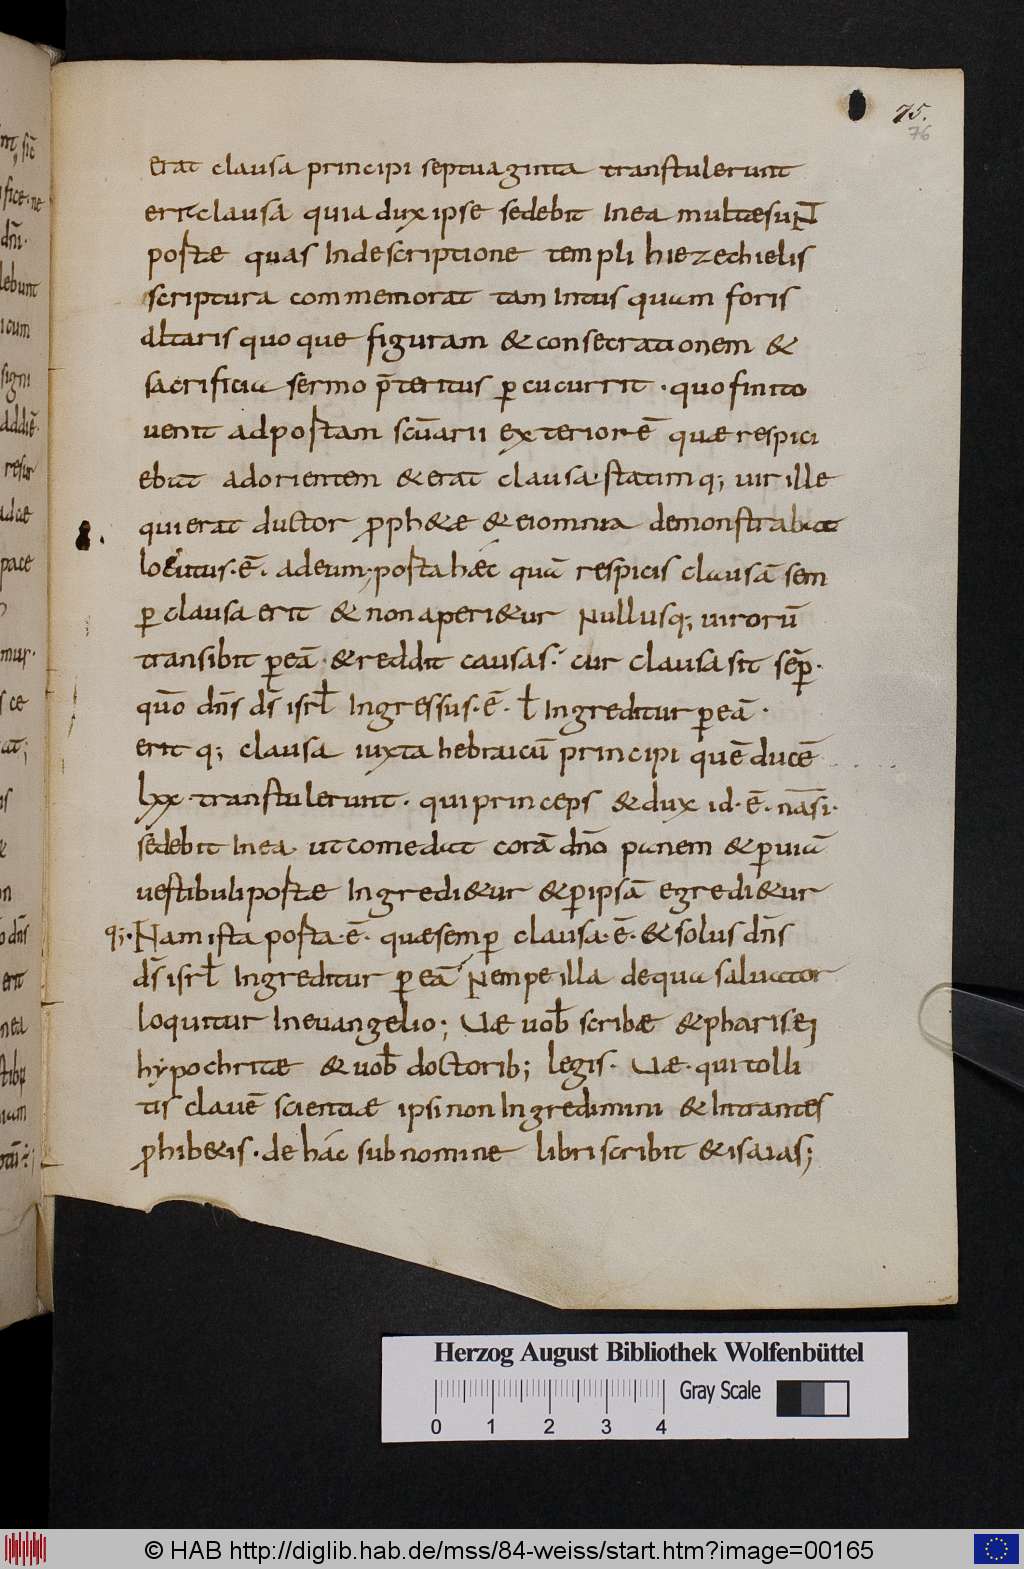 75.
76
erat clausa principi septuaginta transtulerunt
erit clausa quia dux ipse sedebit In ea multæ suNT
portæ quas In descriptione templi hiezechielis
scriptura commemorat tam Intus quam foris
altaris quoque figuram & consecrationem &
sacrificia sermo p̄teritus ꝑcucurrit · quo finito
uenit ad portam scūarii exteriorē quæ respici
ebat ad orientem & erat clausa · statimq; uir ille
qui erat ductor ꝓph&æ & ei omnia demonstrabat
locutus · ē · ad eum; porta hæc quā respicis clausā sem
ꝑ clausa erit & non aperi&ur Nullusq; uirorū
transibit ꝑ eā · & reddit causas · cur clausa sit seꝑ ·
quō dn̄s ds̄ isrł Ingressus · ē · ł Ingreditur ꝑ eā ·
eritq; clausa iuxta hebraicū principi quē ducē
lxx · transtulerunt · qui princeps & dux id · ē · nasi ·
sedebit In ea ut comedat corā dn̄o panem & ꝑ uiā
uestibuli portæ Ingredi&ur & ꝑ ipsā egredi&ur
q; · Nam ista porta · ē · quæ semꝑ clausa · ē · & solus dn̄s
ds̄ isrł Ingreditur ꝑ eā Nempe illa de qua saluator
loquitur In euangelio; Uæ uob̄ scribæ & pharisei
hypochritæ & uob̄ doctorib; legis · Uæ · qui tolli
tis clauē scientiæ ipsi non Ingredimini & Intrantes
ꝓhib&is · de hác sub nomine libri scribit & isaias;
Herzog August Bibliothek Wolfenbüttel
Gray Scale
0 1 2 3 4
© HAB http://diglib.hab.de/mss/84-weiss/start.htm?image=00165